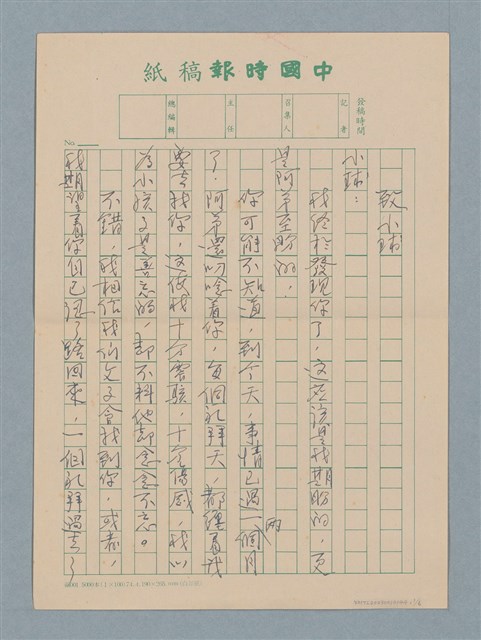 中國時報稿紙
發稿時間
記者
召集人
主任
總編輯
No
致小球
小球:
我終於發現你了,這應該是我期盼的,更
是阿弟至盼的。
你可能不知道,到今天,事情已過一兩個月
了,阿弟還叨唸着你,每個禮拜天,都纏着我
要去找你,這使我十分害駭,十分傷感,我以
為小孩子是善忘的,却不料他却念念不忘。
不錯,我相信我們父子會找到你,或者,
我期望着你自己認了路回來,一個禮拜過去了